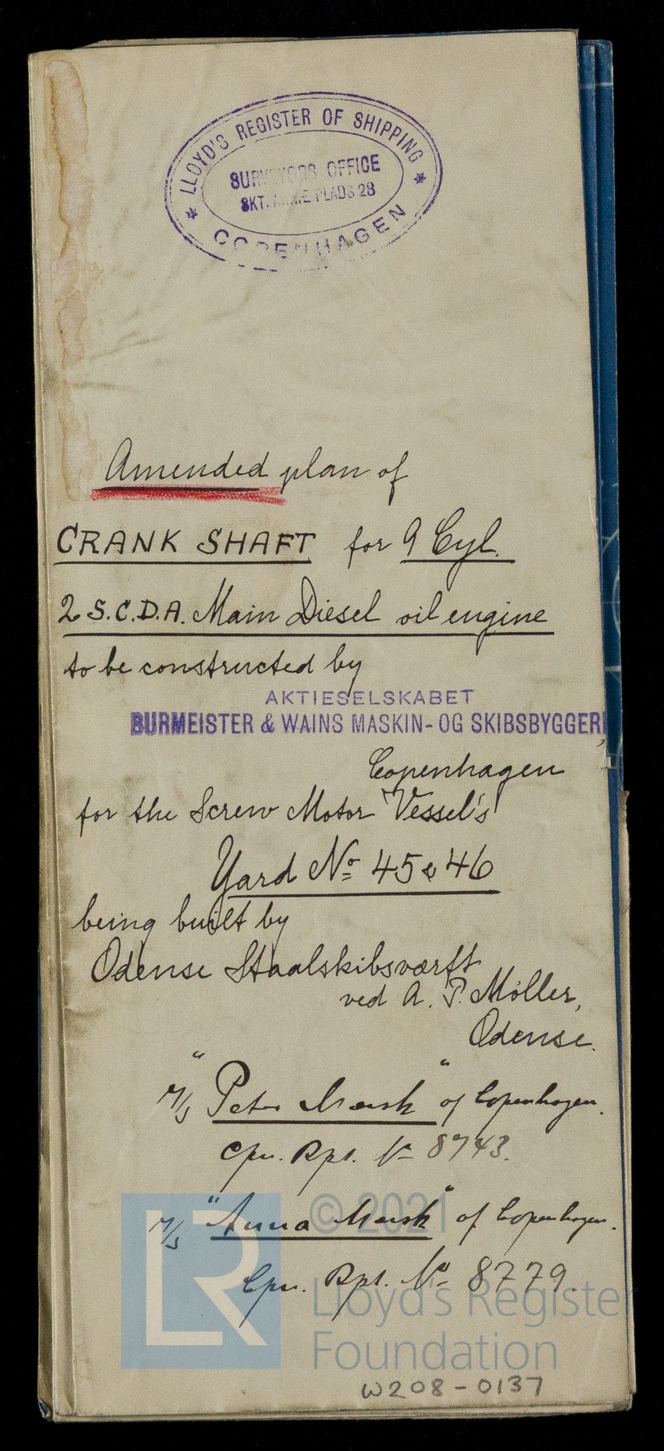 LLOYD'S REGISTER OF SHIPPING
SURVEYORS OFFICE
SKT. ANNÆ PLADS 28
COPENHAGEN
Amended plan of
CRANK SHAFT for 9 Cyl.
2 S.C.D.A. Main Diesel oil engine
to be constructed by
AKTIESELSKABET
BURMEISTER & WAINS MASKIN- OG SKIBSBYGGERI
Copenhagen
for the Screw Motor Vessel's
Yard No 45 & 46
being built by
Odense Staalskibsværft
ved A. P. Møller,
Odense.
M/S "Peter Mærsk" of Copenhagen.
Cpn. Rpt. No 8743.
M/S "Anna Mærsk" of Copenhagen.
Cpn. Rpt. No 8779.
LR
© 2021
Lloyd's Register
Foundation
W208-0137